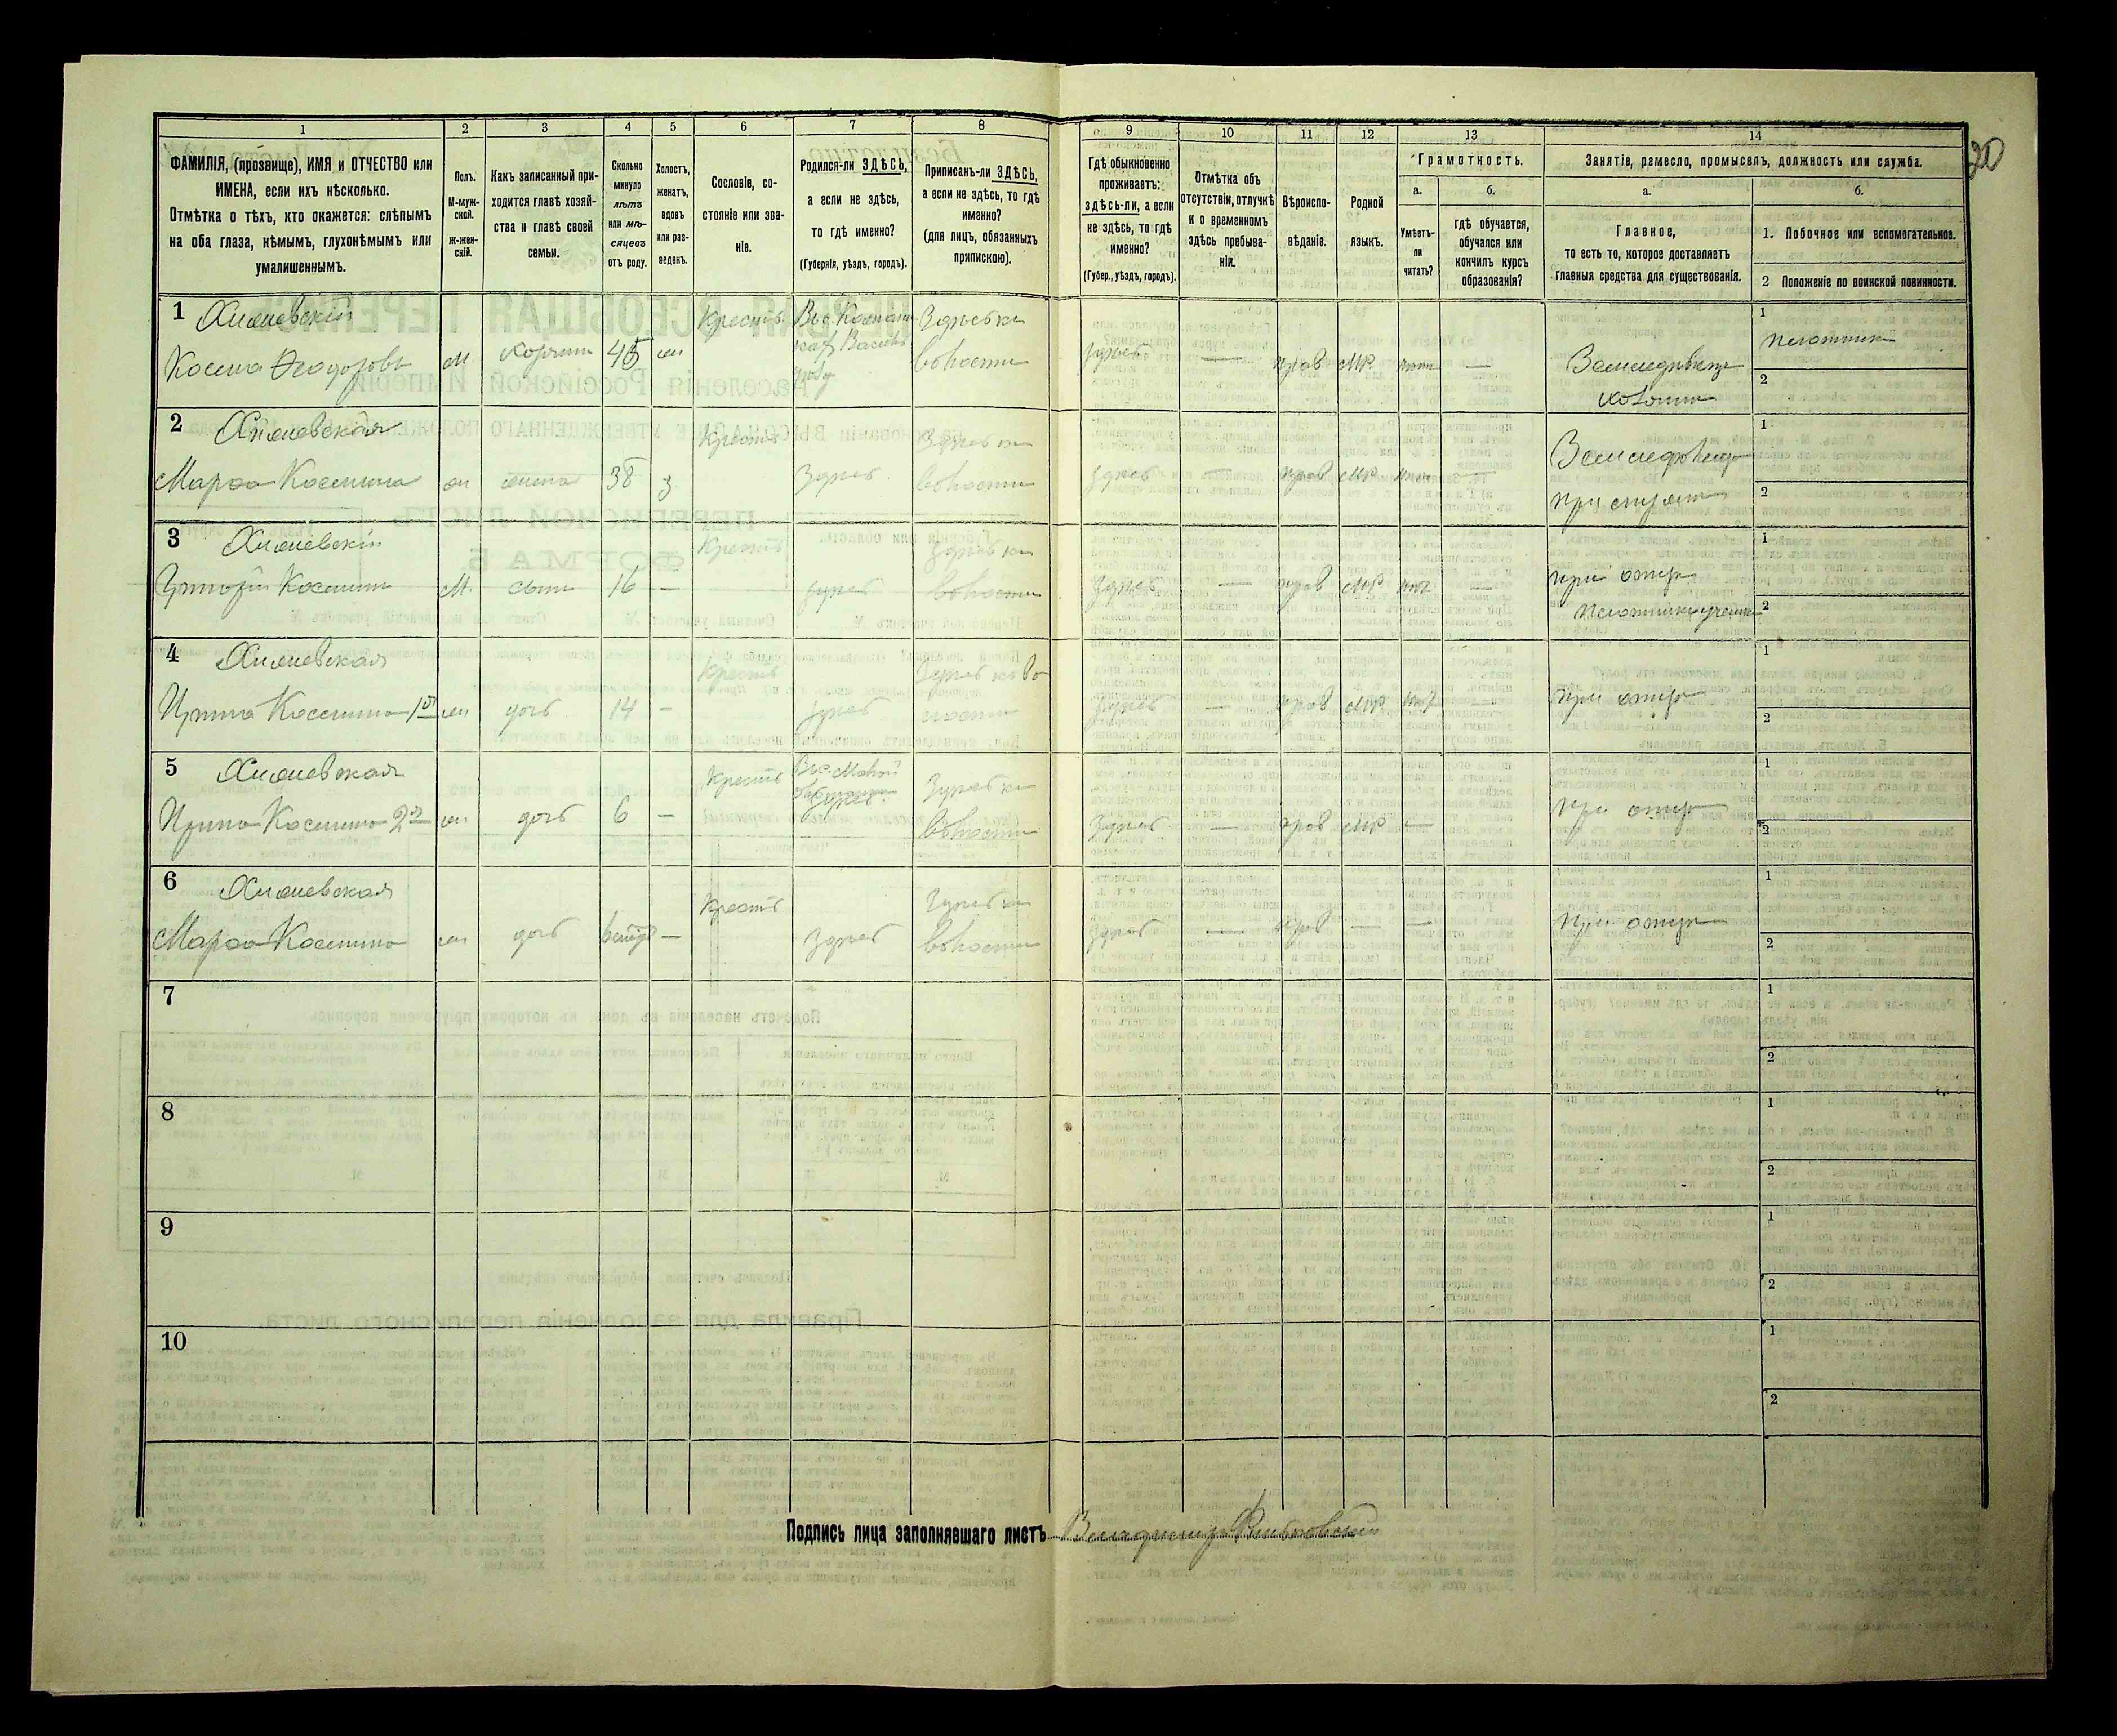 20
1 2 3 4 5 6 7 8 9 10 11 12 13 14
ФАМИЛІЯ, (прозвище), ИМЯ и ОТЧЕСТВО или
ИМЕНА, если ихъ нѣсколько.
Отмѣтка о тѣхъ, кто окажется: слѣпымъ
на оба глаза, нѣмымъ, глухонѣмымъ или
умалишеннымъ.
Полъ.
М-муж-
ской.
ж-жен-
скій.
Какъ записанный при-
ходится главѣ хозяй-
ства и главѣ своей
семьи.
Сколько
минуло
лѣтъ
или мѣ-
сяцевъ
отъ роду.
Холостъ,
женатъ,
вдовъ
или раз-
веденъ.
Сословіе, со-
стояніе или зва-
ніе.
Родился-ли ЗДѢСЬ,
а если не здѣсь,
то гдѣ именно?
(Губернія, уѣздъ, городъ).
Приписанъ-ли ЗДѢСЬ,
а если не здѣсь, то гдѣ
именно?
(для лицъ, обязанныхъ
припискою).
Гдѣ обыкновенно
проживаетъ:
здѣсь-ли, а если
не здѣсь, то гдѣ
именно?
(Губер., уѣздъ, городъ).
Отмѣтка объ
отсутствіи, отлучкѣ
и о временномъ
здѣсь пребыва-
ніи.
Вѣроиспо-
вѣданіе.
Родной
языкъ.
Грамотность.
а.
Умѣетъ-
ли
читать?
б.
гдѣ обучается,
обучался или
кончилъ курсъ
образованія?
Занятіе, ремесло, промыселъ, должность или служба.
а.
Главное,
то есть то, которое доставляетъ
главныя средства для существованія.
б.
1. Побочное или вспомогательное.
2 Положеніе по воинской повинности.
1 Хижневскій
Косма Ѳеодоровъ м хозяинъ 45 жн Крестъ здѣсь — прав мр нѣтъ — Земледѣлецъ
хозяинъ
1 плотникъ
2
2 Хижневская
Марѳа Космина жн жена 38 з Крестъ Здѣсь здѣсь — прав мр нѣтъ Земледѣлецъ
при мужѣ
1
2
3 Хижневскій
Григорій Косминъ м. сынъ 16 — Крестъ здѣсь здѣсь — прав мр нѣт — при отцѣ
1
2
4 Хижневская
Ирина Космина 1я жн дочь 14 — Крестъ здѣсь здѣсь — прав мр нѣт — при отцѣ
1
2
5 Хижневская
Ирина Космина 2я жн дочь 6 — Крестъ здѣсь — прав мр — при отцѣ
1
2
6 Хижневская
Марѳа Космина жн дочь — Крестъ здѣсь здѣсь — прав — — при отцѣ
1
2
7
1
2
8
1
2
9
1
2
10
1
2
Подпись лица заполнявшаго листъ Владимиръ